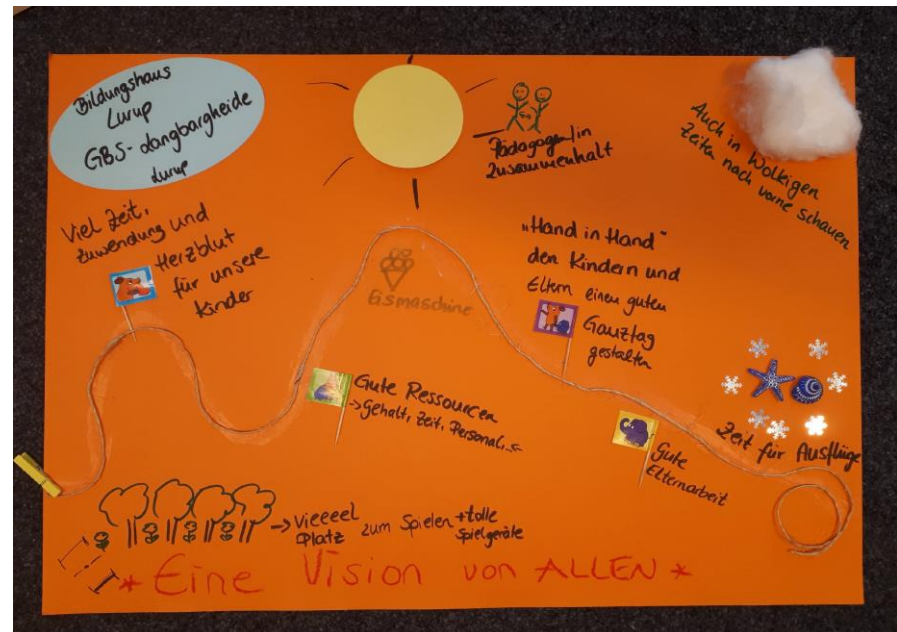 Bildungshaus
Lurup
GBS-Langbargheide
Lurup
Pädagogen/in
Zusammenhalt
Auch in Wolkigen
Zeiten nach vorne schauen
Viel Zeit,
Zuwendung und
Herzblut
für unsere
Kinder
Eismaschine
„Hand in Hand“
den Kindern und
Eltern einen guten
Ganztag
gestalten
Gute Ressourcen
-> Gehalt, Zeit, Personal,
Gute
Elternarbeit
Zeit für Ausflüge
-> Vieeeel
Platz zum Spielen + tolle
Spielgeräte
* Eine Vision von ALLEN *